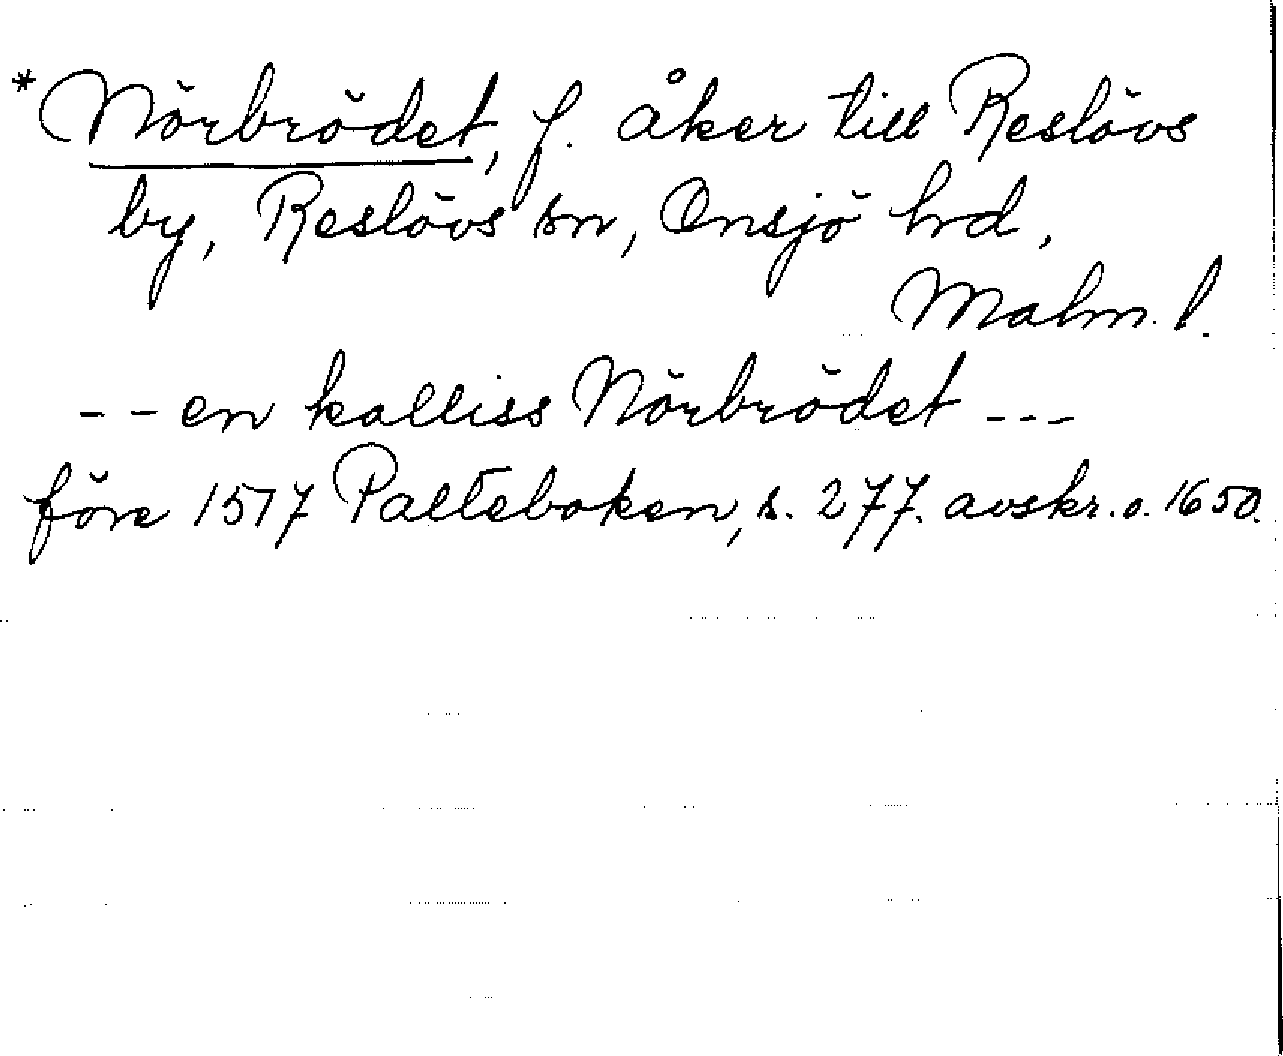 *Nörbrödet, f. åker till Reslövs
by, Reslövs sn, Onsjö hrd,
Malm. l.
-- en kalliss Nörbrödet ---
före 1517 Palteboken, s. 277. avskr. o. 1650.